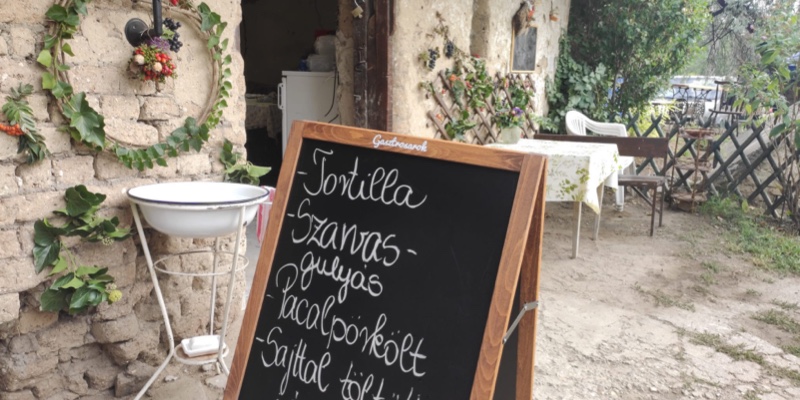 Gastrosarok
- Tortilla
- Szarvas-
gulyás
- Pacalpörkölt
- Sajttal